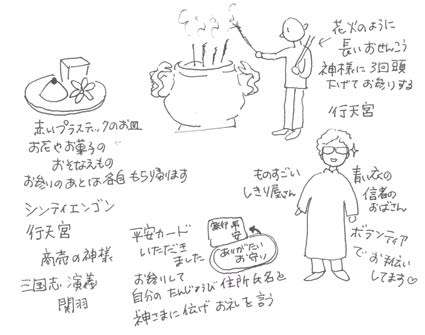 花火のように
長いおせんこう
神様に3回頭
下げてお参りする
行天宮
赤いプラスティックのお皿
お花やお菓子の
おそなえもの
お参りのあとは各自もち帰ります
シンティエンゴン
行天宮
商売の神様
三国志演義
関羽
平安カード
いただき
ました
平安
ありがたい
お守り
お参りして
自分のたんじょうび住所氏名を
神さまに伝げお礼を言う
ものすごい
しきり屋さん
青い衣の
信者の
おばさん
ボランティア
でお手伝い
してます♡